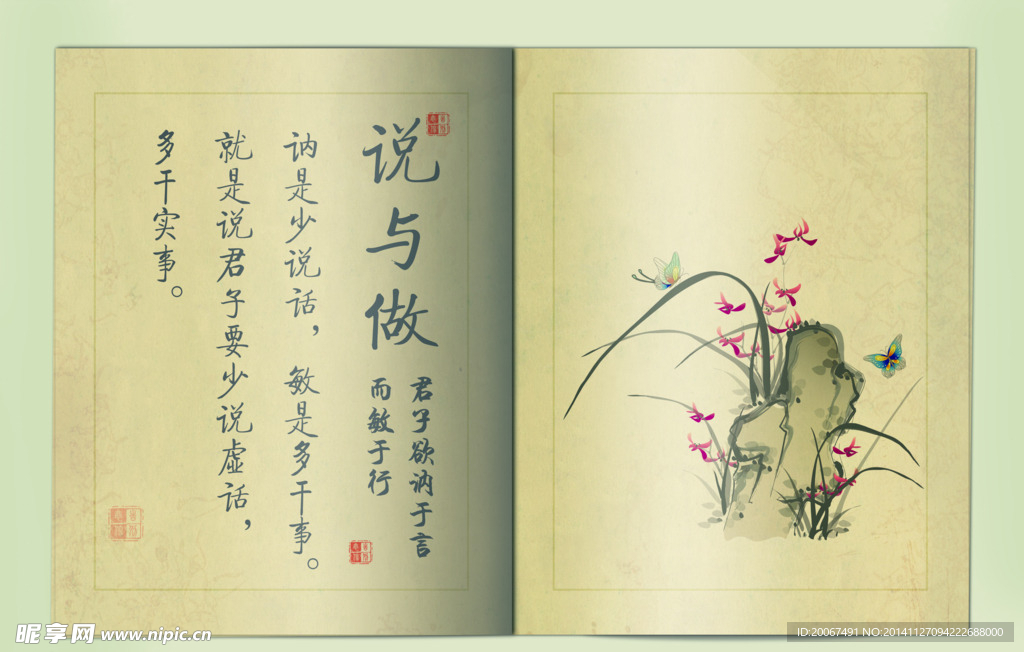 说与做
君子欲讷于言
而敏于行
讷是少说话，敏是多干事。
就是说君子要少说虚话，
多干实事。
昵享网 www.nipic.cn
ID:20067491 NO:20141127094222688000